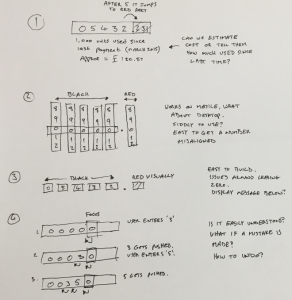 AFTER 5 IT JUMPS
TO RED PART
1
0 5 4 3 2 231
1,000 UNITS USED SINCE
LAST PAYMENT (MARCH 2015)
APPROX = £120.57
CAN WE ESTIMATE
COST OR TELL THEM
HOW MUCH USED SINCE
LAST TIME?
2
BLACK
RED
WORKS ON MOBILE, WHAT
ABOUT DESKTOP.
FIDDLY TO USE?
EASY TO GET A NUMBER
MISALIGNED
3
BLACK
RED VISUALLY
EASY TO BUILD.
ISSUES AROUND LEADING
ZERO.
DISPLAY MESSAGE BELOW?
4
FOCUS
1. 0 0 0 0 0
USER ENTERS '3'.
2. 0 0 0 3 0
3 GETS PUSHED.
USER ENTERS '5'.
3. 0 0 3 5 0
5 GETS PUSHED.
IS IT EASILY UNDERSTOOD?
WHAT IF A MISTAKE IS
MADE?
HOW TO UNDO?